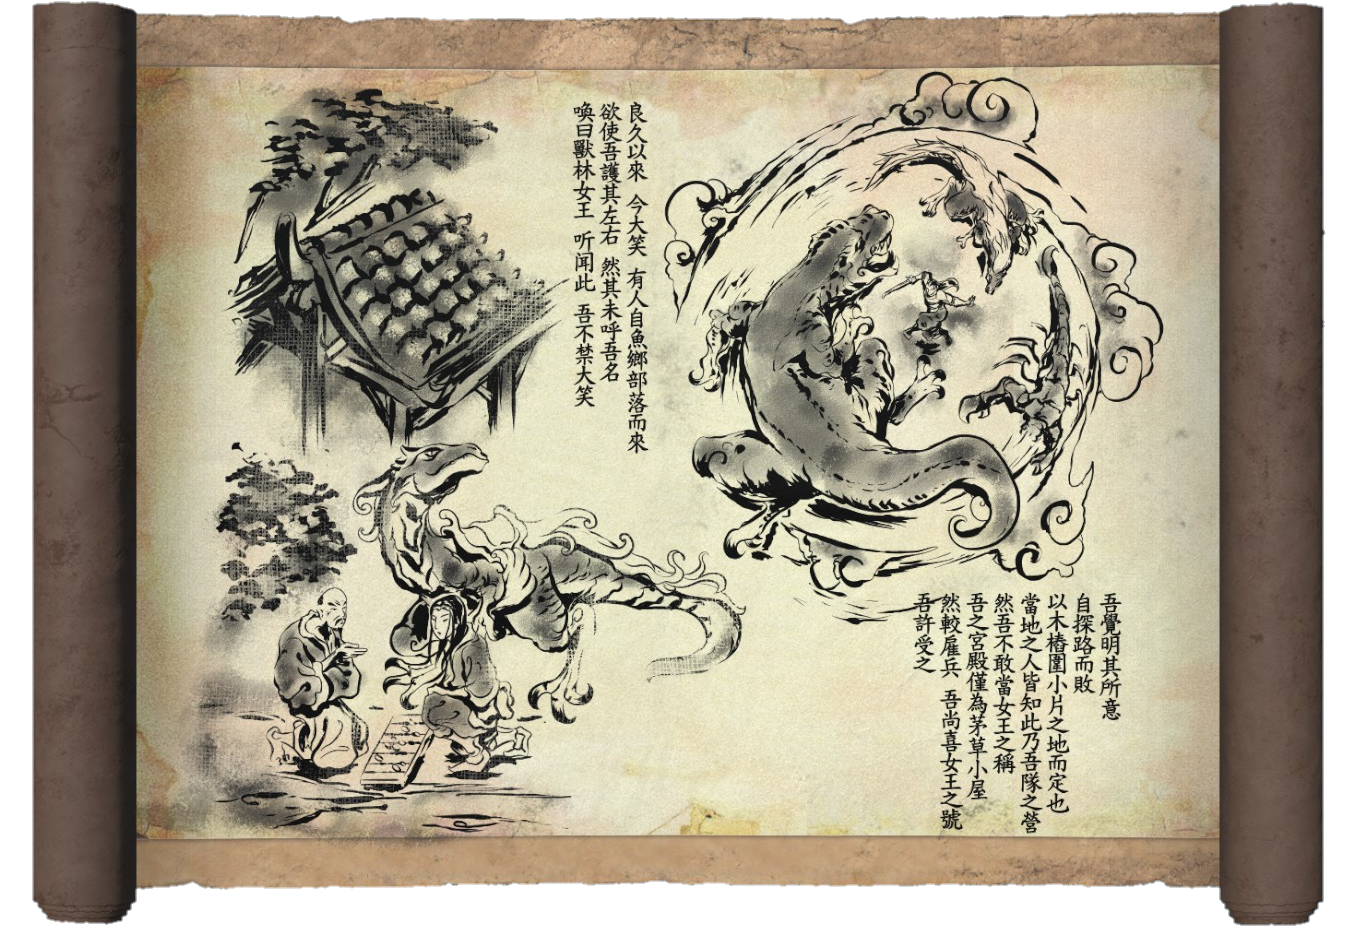 良久以來 今大笑 有人自魚鄉部落而來
欲使吾護其左右 然其未呼吾名
喚曰獸林女王 听闻此 吾不禁大笑
吾覺明其所意
自探路而敗
以木樁圍小片之地而定也
當地之人皆知此乃吾隊之營
然吾不敢當女王之稱
吾之宮殿僅為茅草小屋
然較雇兵 吾尚喜女王之號
吾許受之